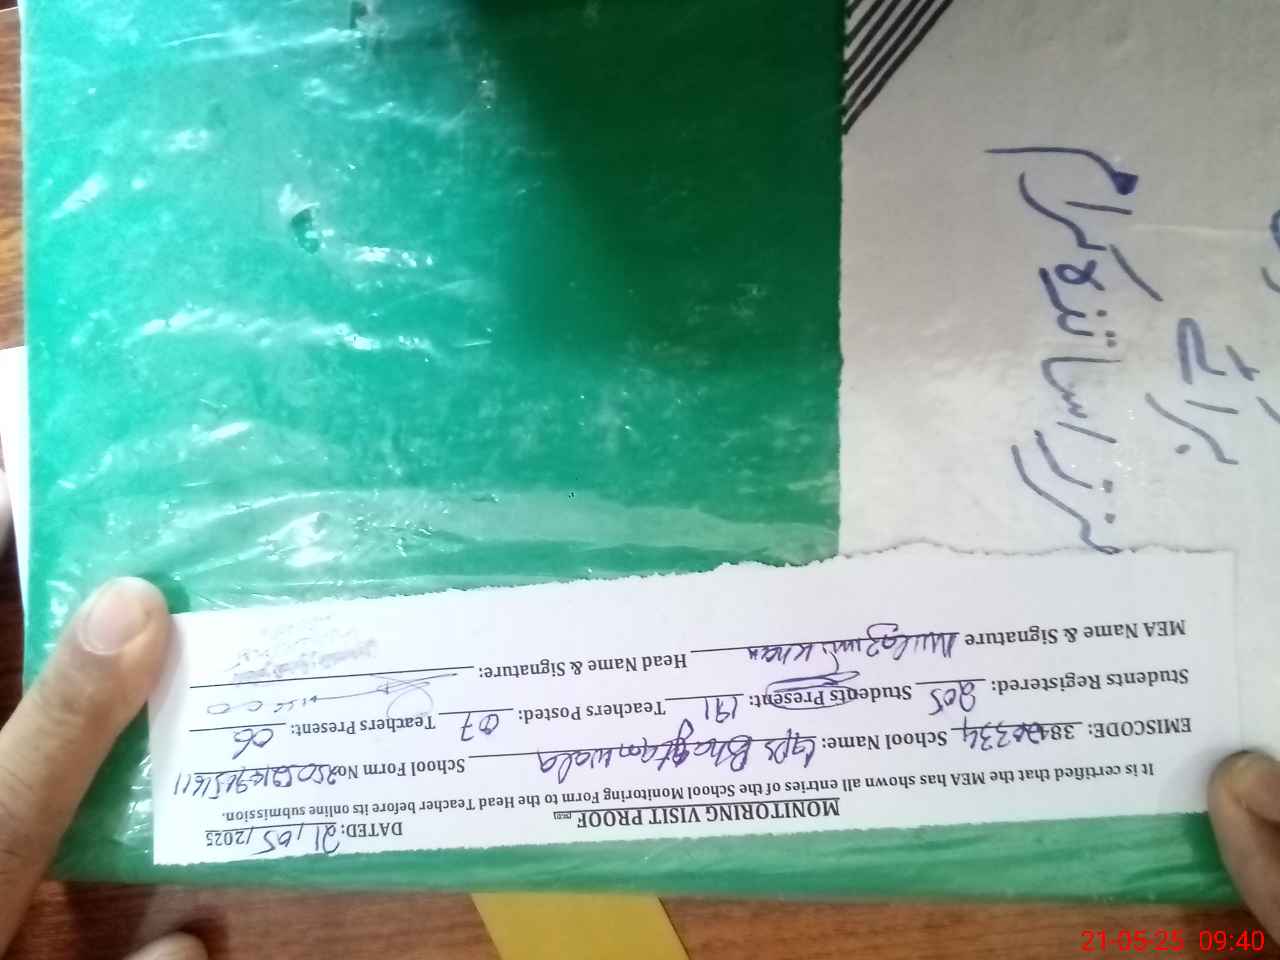 MONITORING VISIT PROOF
DATED: 21/05/2025
It is certified that the MEA has shown all entries of the School Monitoring Form to the Head Teacher before its online submission.
EMISCODE: 38420334 School Name: GPS Bhagtanwala School Form No
Students Registered: 205 Students Present: 191 Teachers Posted: 07 Teachers Present: 06
MEA Name & Signature Khan Head Name & Signature:
برائے
اساتذہ کرام
21-05-25 09:40